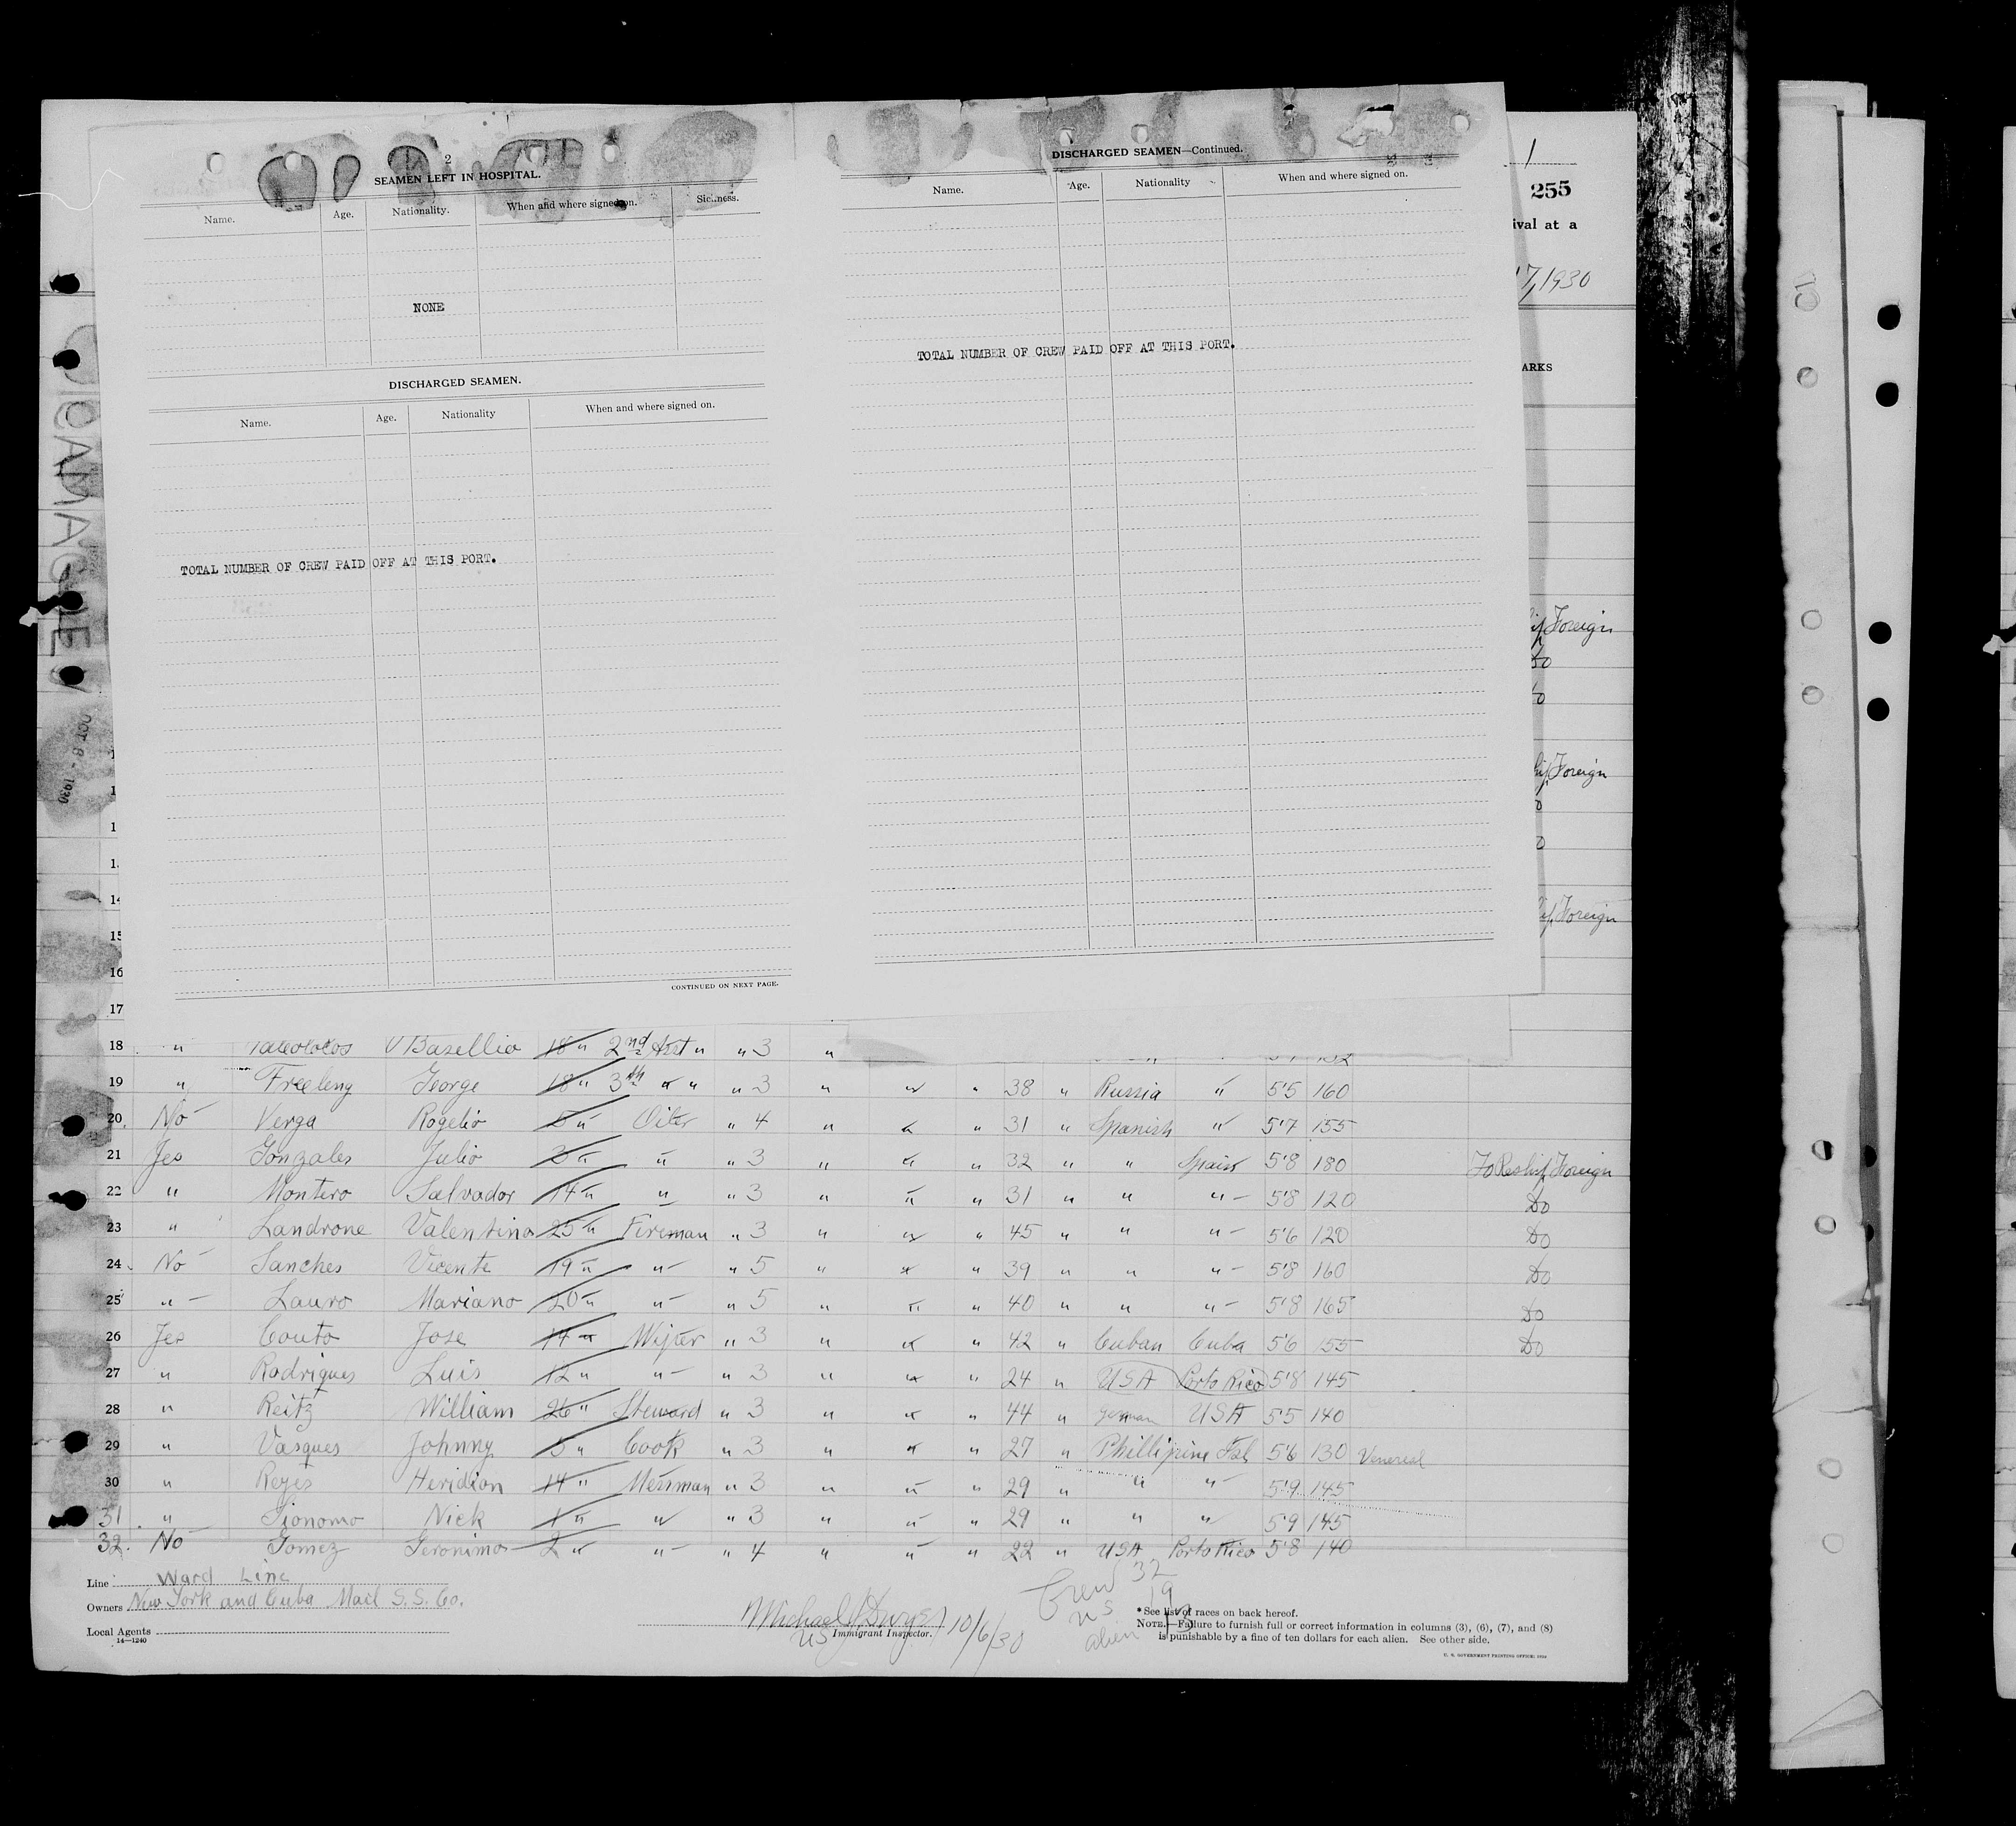 2
SEAMEN LEFT IN HOSPITAL.
Name. Age. Nationality. When and where signed on. Sickness.
NONE
DISCHARGED SEAMEN.
Name. Age. Nationality When and where signed on.
TOTAL NUMBER OF CREW PAID OFF AT THIS PORT.
CONTINUED ON NEXT PAGE.
DISCHARGED SEAMEN—Continued.
Name. Age. Nationality When and where signed on.
TOTAL NUMBER OF CREW PAID OFF AT THIS PORT.
1
255
ival at a
17, 1930
ARKS
Foreign
Do
Foreign
Foreign
DAMAGE
OCT 8 - 1930
14
15
16
17
18 " Basellio 18 " 2nd Asst " " 3 "
19 " Freeleng George 18 " 3th " " " 3 " " " 38 " Russia " 5'5 160
20. No Verga Rogelio 5 " Oiler " 4 " " " 31 " Spanish " 5'7 155
21 Yes Gonzales Julio 3 " " " 3 " " " 32 " " Spain 5'8 180 To Reship Foreign
22 " Montero Salvador 14 " " " 3 " " " 31 " " " 5'8 120 Do
23 " Landrone Valentino 25 " Fireman " 3 " " " 45 " " " 5'6 120 Do
24 No Sanches Vicente 19 " " " 5 " " " 39 " " " 5'8 160 Do
25 " Lauro Mariano 20 " " " 5 " " " 40 " " " 5'8 165 Do
26 Yes Couto Jose 14 " Wiper " 3 " " " 42 " Cuban Cuba 5'6 155 Do
27 " Rodriques Luis 12 " " " 3 " " " 24 " USA Porto Rico 5'8 145
28 " Reitz William 26 " Steward " 3 " " " 44 " German USA 5'5 140
29 " Vasques Johnny 5 " Cook " 3 " " " 27 " Phillipine Isl 5'6 130 Venereal
30 " Reyes Heridian 14 " Messman " 3 " " " 29 " " " 5'9 145
31 " Sionomo Nick 1 " " " 3 " " " 29 " " " 5'9 145
32. No Gomez Geronimo 2 " " " 4 " " " 22 " USA Porto Rico 5'8 140
Line Ward Line
Owners New York and Cuba Mail S.S. Co.
Local Agents
14—1240
Michael J Dwyer 10/6/30
US Immigrant Inspector.
Crew 32
US 19
alien 13
* See list of races on back hereof.
NOTE.—Failure to furnish full or correct information in columns (3), (6), (7), and (8)
is punishable by a fine of ten dollars for each alien. See other side.